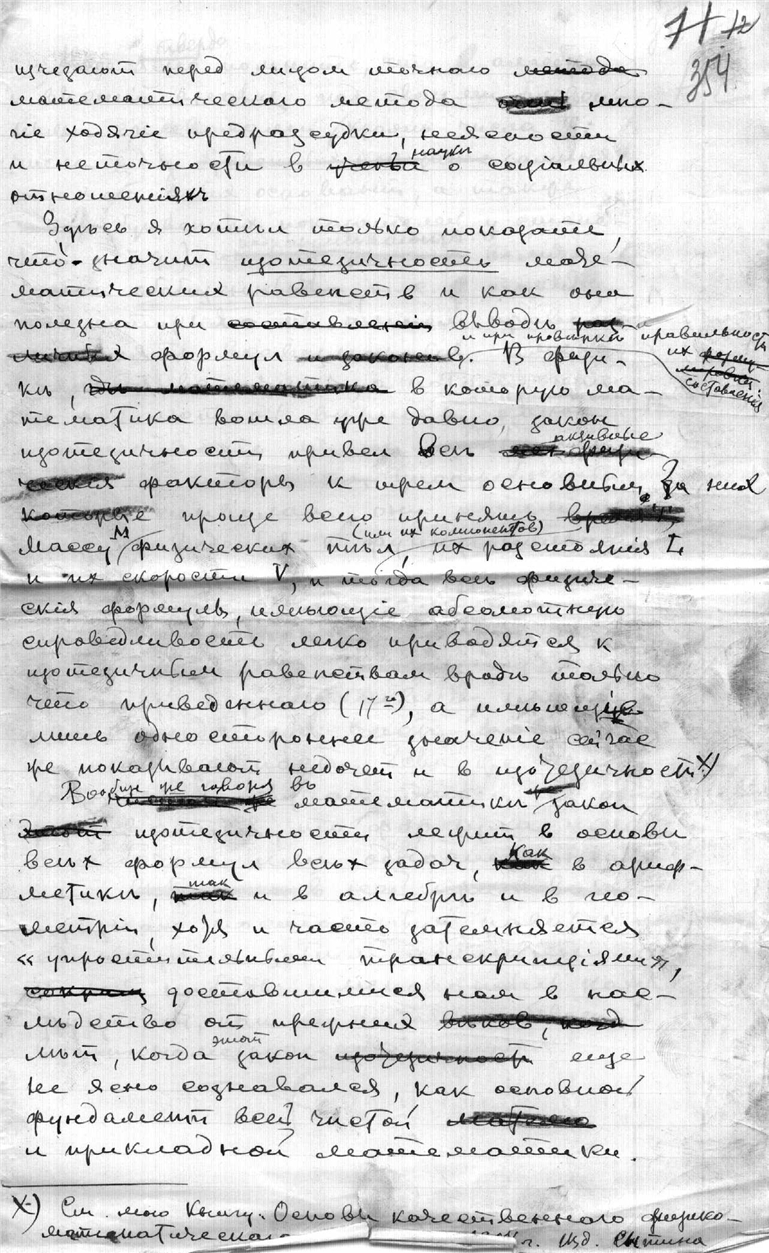 71 72
354
исчезают перед лицом точного метода
математического метода мно-
гіе ходячіе предразсудки, неясности
и неточности в науки о соціальных
отношеніях
Здѣсь я хотѣл только показать,
что значит изотезичность мате-
матических равенств и как она
полезна при составленіи выводѣ
и при провѣрки правильности
их составленія
формул и законов. В физи-
кѣ, в которую ма-
тематика вошла уже давно, закон
изотезичности привел всѣ активные
факторы к трем основным. За них
которые проще всего принять
массу М физических тѣл (или их компонентов), их разстоянія L
и их скорости V, и тогда всѣ физиче-
скія формулы, имѣющіе абсолютную
справедливость легко приводятся к
изотезичным равенствам вродѣ только
что приведеннаго (17), а имѣющіе
лишь одностороннее значеніе сейчас
же показывают недочет и в изотезичности х)
Вообще же говоря в математикѣ закон
изотезичности лежит в основѣ
всѣх формул всѣх задач, как в ариф-
метикѣ, так и в алгебрѣ и в гео-
метріи, хотя и часто затемняется
«упростительными транскрипціями»,
доставшимися нам в нас-
лѣдство от прежних вѣков, когд
лѣт, когда этот закон изотезичност еще
не ясно сознавался, как основной
фундамент всей чистой
и прикладной математики.
х) См. мою книгу: Основы качественнаго физико-
математическаго г. Изд. Сытина